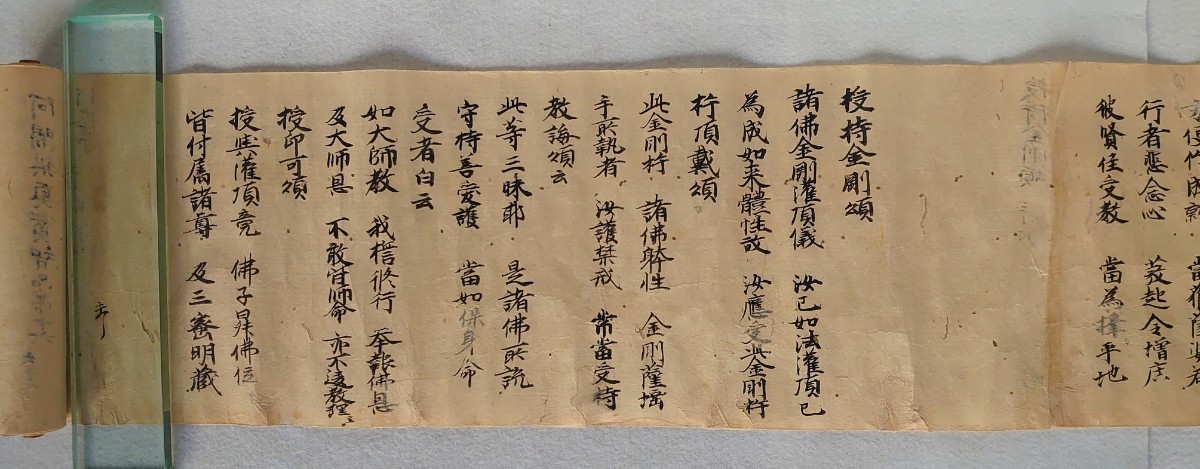 行者悲念心　發起令増広
彼賢任受教　當為擇平地
授持金剛頌
諸佛金剛灌頂儀　汝已如法灌頂已
為成如来體性故　汝應受此金剛杵
杵頂戴頌
此金剛杵　諸佛躰性　金剛薩埵
手所執者　汝護禁戒　常當受持
教論頌云
此等三昧耶　是諸佛所説
守持善愛護　當如保身命
受者白云
如大師教　我誓修行　奉報佛恩
及大师恩　不敢官师命　亦不違教理
授印可頌
授與灌頂竟　佛子昇佛位
皆付属諸尊　及三密明藏